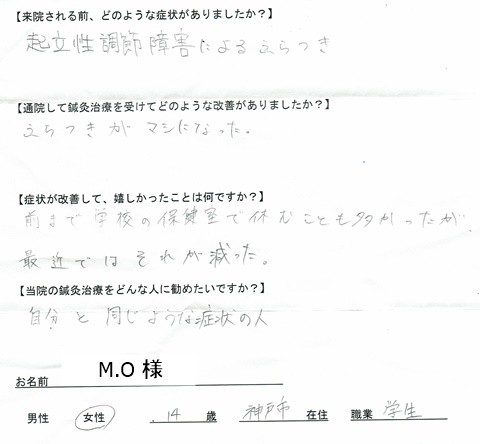 【来院される前、どのような症状がありましたか？】
起立性調節障害によるふらつき
【通院して鍼灸治療を受けてどのような改善がありましたか？】
ふらつきがマシになった。
【症状が改善して、嬉しかったことは何ですか？】
前まで学校の保健室で休むことも多かったが、
最近ではそれが減った。
【当院の鍼灸治療をどんな人に勧めたいですか？】
自分と同じような症状の人
お名前 M.O 様
男性 女性 14 歳 神戸市 在住 職業 学生